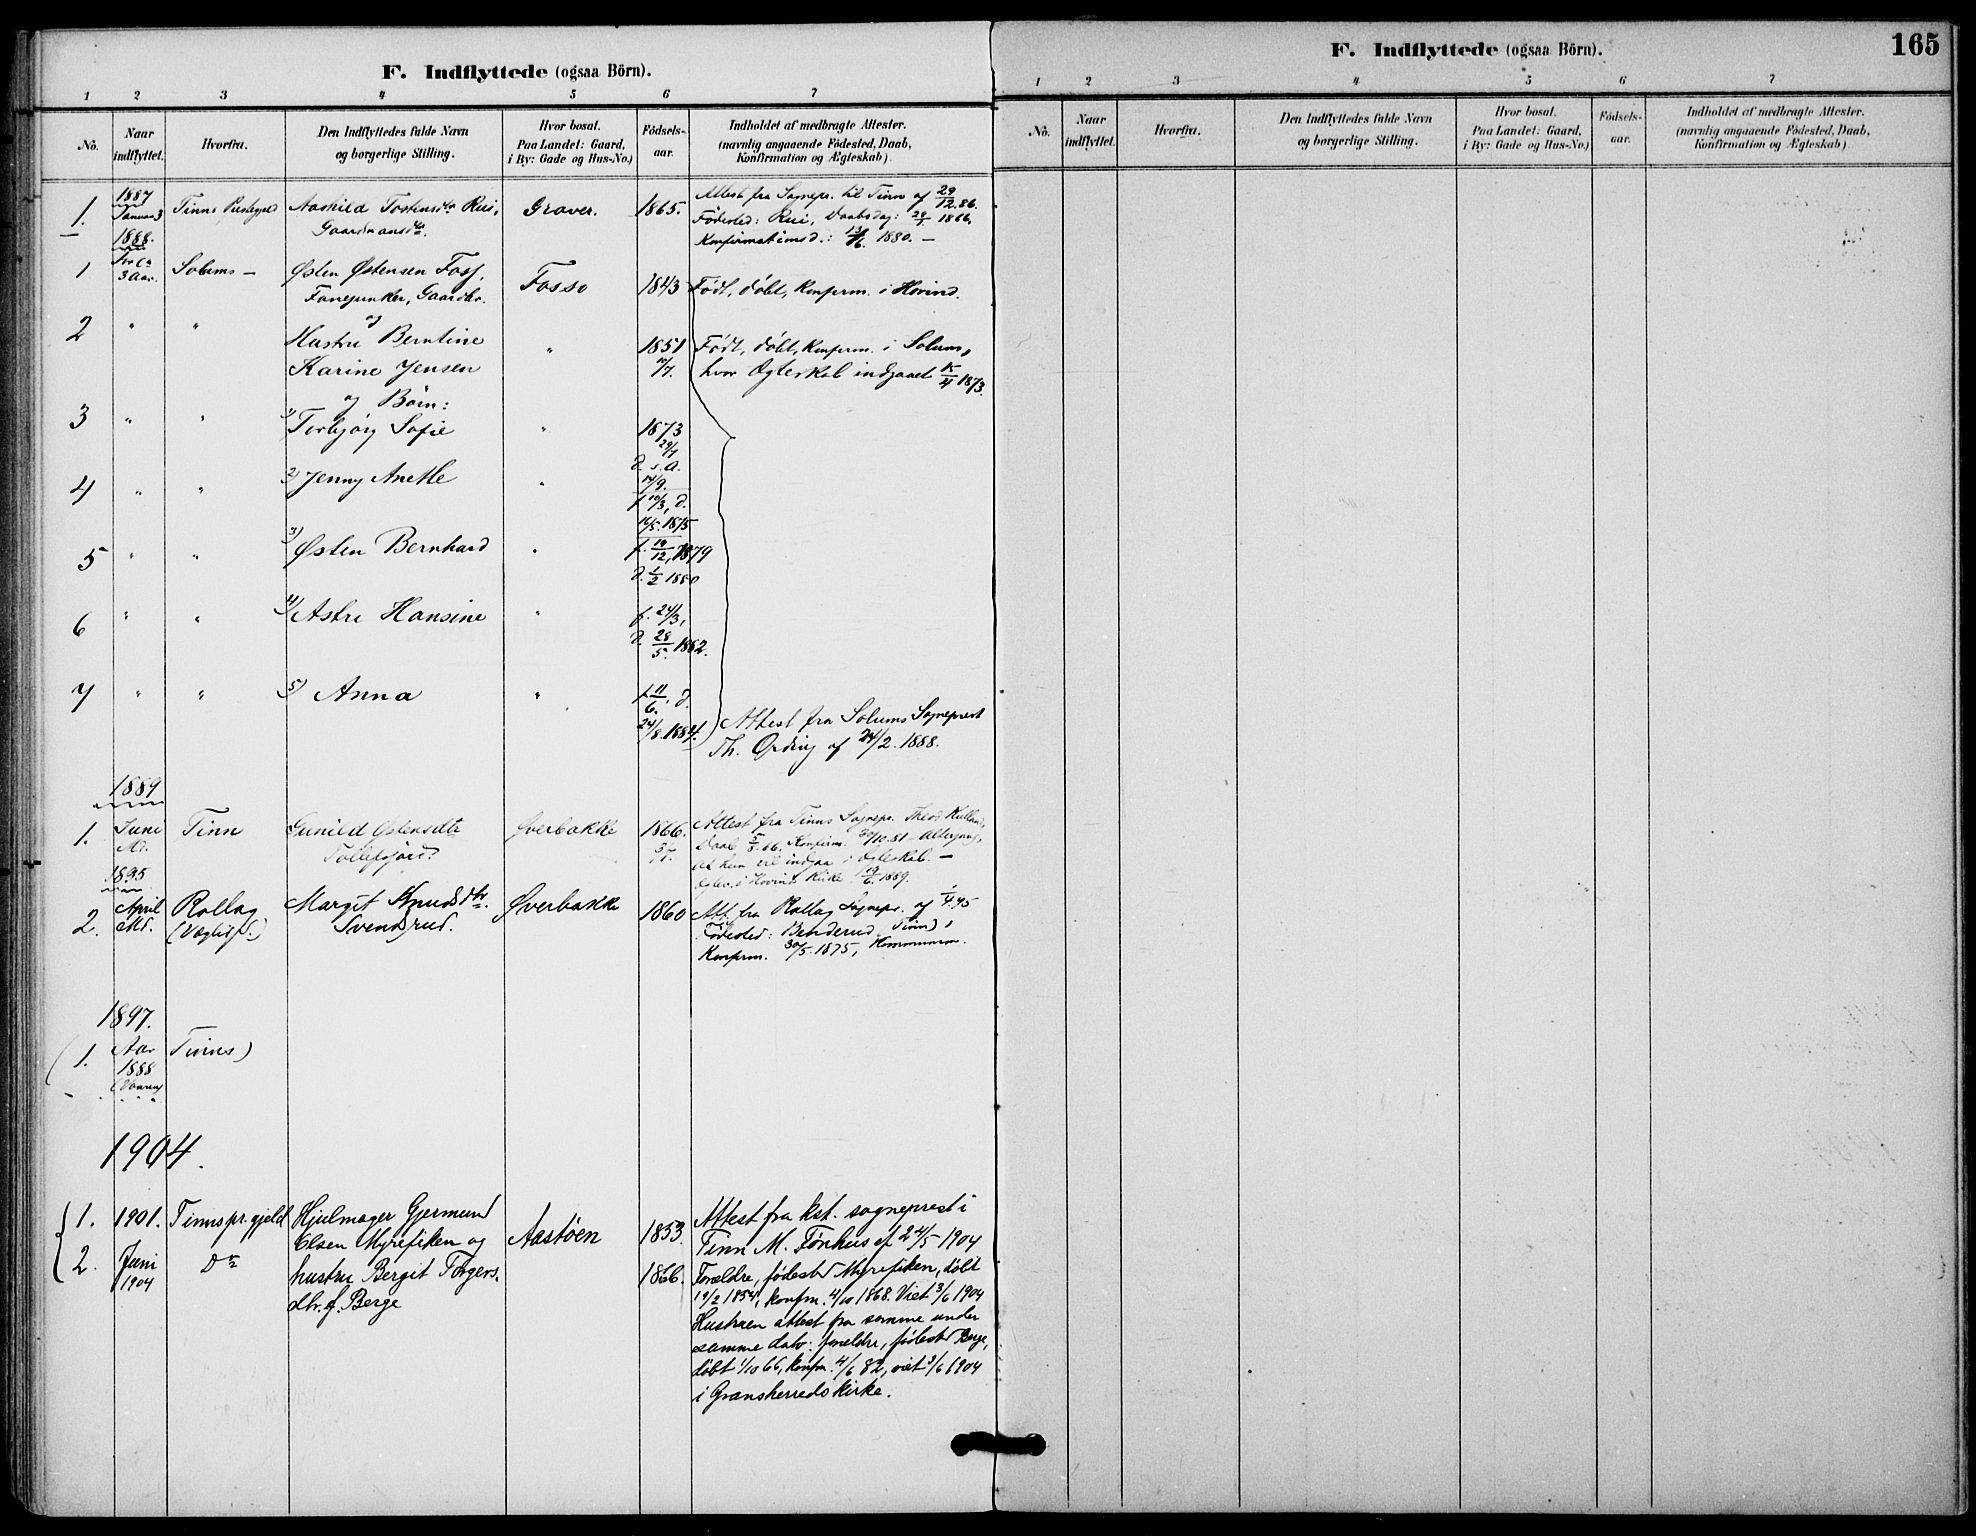 F. Indflyttede (ogsaa Börn).
1 2 3 4 5 6 7
No.
Naar indflyttet.
Hvorfra.
Den Indflyttedes fulde Navn
og borgerlige Stilling.
Hvor bosat.
Paa Landet: Gaard,
i By: Gade og Hus-No.)
Fødsels-
aar.
Indholdet af medbragte Attester.
(navnlig angaaende Födested, Daab,
Konfirmation og Ægteskab).
1887
1. Januar 3 Tinns Aashild Tostensdtr Rui, Graver. 1865. Attest fra Sognepr. til Tinn af 29/12. 86.
Gaardmandsdtr. Fødested: Rui, Daabsdag: 1866,
Konfirmationsd.: 1880. —
1888.
1 For ca 3 Aar. Solums — Østen Østensen Foss, Fosso 1843 Født, døbt, konfirm. i Hovind.
Fanejunker, Gaardbr.
og
2 " " Hustru Berntine " 1851 Født, døbt, konfirm. i Solum,
Karine Jensen hvor Ægteskab indgaaet 1873.
og Börn:
3 " " 1) Torbjørg Sofie " 1873
29/1
d. s. A.
4 " " 2) Jenny Anette " 14/9.
f. 10/3, d.
16/5. 1875
5 " " 3) Østen Bernhard " f. 19/12, 1879
d. 1/2 1880
6 " " 4) Astri Hansine " f. 24/3,
d. 28/5. 1882.
7 " " 5) Anna " f. 11/6. d.
24/8. 1884. Attest fra Solums Sogneprest
Th. Ording af 24/2. 1888.
1889
1. Juni Md. Tinn Gunild Østensdtr Øverbakke 1866. Attest fra Tinns Sognepr. Theod
Daab 66, Konfirm. 81 —
at hun vil indgaa i Ægteskab. —
i Hovind Kirke 1889.
1895
2. April Md. Rollag Margit Knudsdtr. Øverbakke 1860 Att. fra Rollag Sognepr. af 1/4. 95
Svendsrud. Fødested: (Tinn),
Konfirm. 30/5. 1875,
1897.
(1. Aar Tinns)
1888
1904.
1. 1901. Tinns pr.gjeld Hjulmager Gjermund Aastøen 1853. Attest fra kst. sogneprest i
Olsen Myrefiken og Tinn M. Fønhus af 24/5 1904
2. Juni 1904 Do hustru Bergit Torgers- 1866. Forældre, fødested Myrefiken, døbt
dtr. f. Berge 19/2 1854, konfm. 4/10 1868. Viet 3/6 1904
Hustruen attest fra samme under
samme dato: forældre, fødested Berge,
døbt 1/10 66, konfm. 4/6 82, viet 3/6 1904
i Gransherreds kirke.
F. Indflyttede (ogsaa Börn).
165
1 2 3 4 5 6 7
No.
Naar
indflyttet.
Hvorfra.
Den Indflyttedes fulde Navn
og borgerlige Stilling.
Hvor bosat.
Paa Landet: Gaard,
i By: Gade og Hus-No.)
Fødsels-
aar.
Indholdet af medbragte Attester.
(navnlig angaaende Födested, Daab,
Konfirmation og Ægteskab)